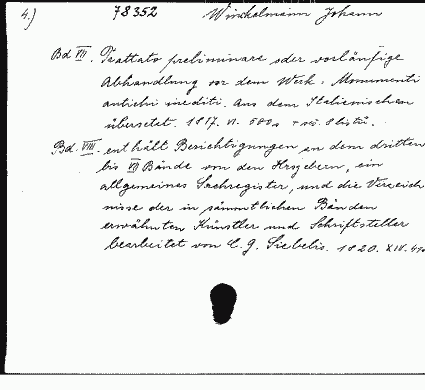 4.) 78352 Winckelmann Johann
Bd VII. Trattato preliminare oder vorläufige
Abhandlung vor dem Werk: Monumenti
antichi inediti. Aus dem Italienischen
übersetzt. 1817. VI. 580
Bd. VIII. enthält Berichtigungen zu dem dritten
bis VII Bände von den Hrsgebern, ein
allgemeines Sachregister, und die Verzeich
nisse der in sämmtlichen Bänden
erwähnten Künstler und Schriftsteller
bearbeitet von C. G. Siebelis. 1820. XIV.